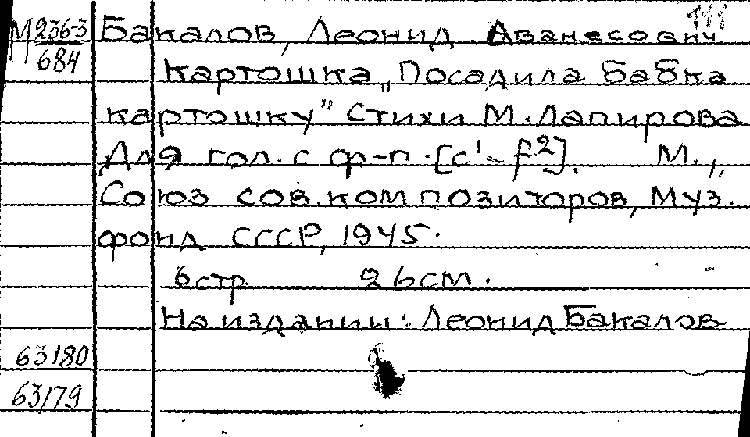 М 236-3
684
Бакалов, Леонид Аванесович
Картошка „Посадила бабка
картошку" Стихи М. Лапирова
Для гол. с ф-п. [c¹-f²]. М.,
Союз сов. композиторов, Муз.
фонд СССР, 1945.
6 стр 26 см.
На издании: Леонид Бакалов
63180
63179